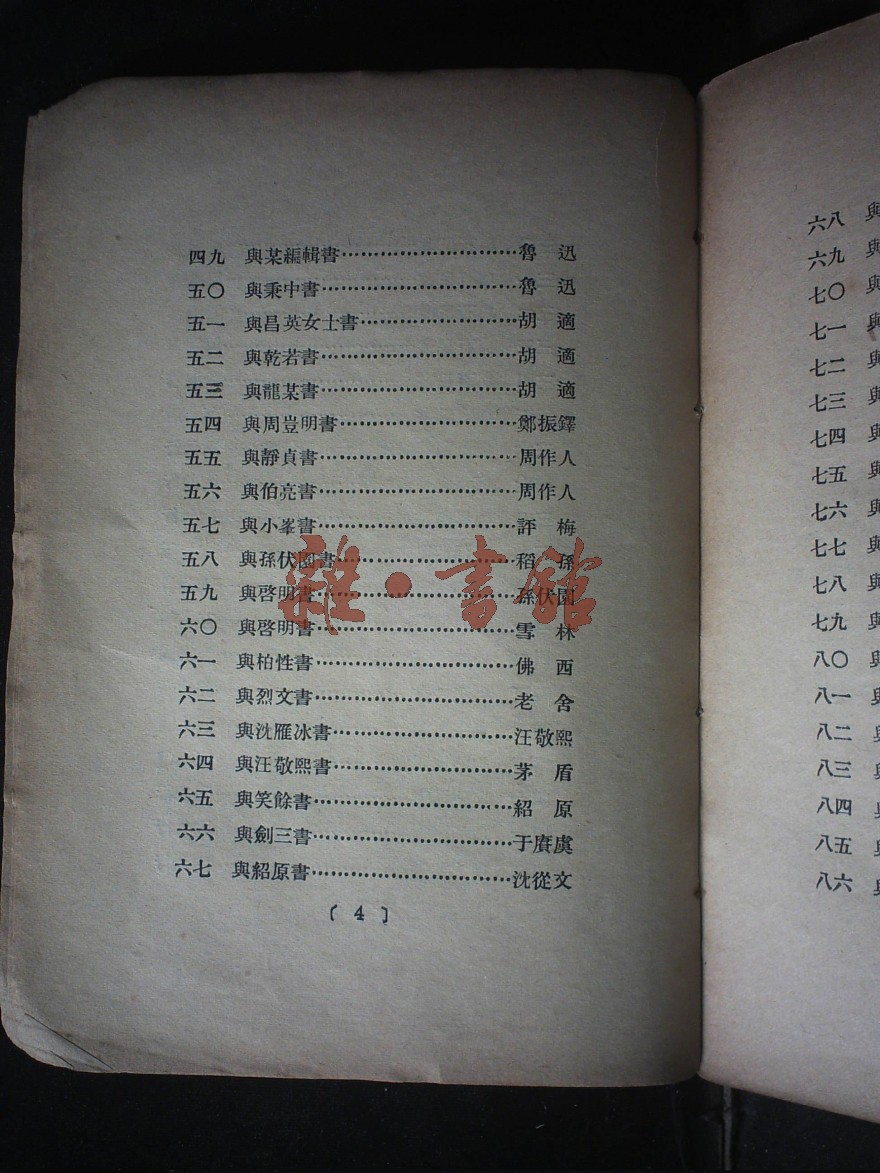 四九 與某編輯書……………………魯 迅
五〇 與秉中書……………………魯 迅
五一 與昌英女士書……………………胡 適
五二 與乾若書……………………胡 適
五三 與龍某書……………………胡 適
五四 與周豈明書……………………鄭振鐸
五五 與靜貞書……………………周作人
五六 與伯亮書……………………周作人
五七 與小峯書……………………評 梅
五八 與孫伏園書……………………稻 孫
五九 與啓明書……………………孫伏園
六〇 與啓明書……………………雪 林
六一 與柏性書……………………佛 西
六二 與烈文書……………………老 舍
六三 與沈雁冰書……………………汪敬熙
六四 與汪敬熙書……………………茅 盾
六五 與笑餘書……………………紹 原
六六 與劍三書……………………于賡虞
六七 與紹原書……………………沈從文
〔 4 〕
雜·書館
六八 與
六九 與
七〇 與
七一 與
七二 與
七三 與
七四 與
七五 與
七六 與
七七 與
七八 與
七九 與
八〇 與
八一 與
八二 與
八三 與
八四 與
八五 與
八六 與